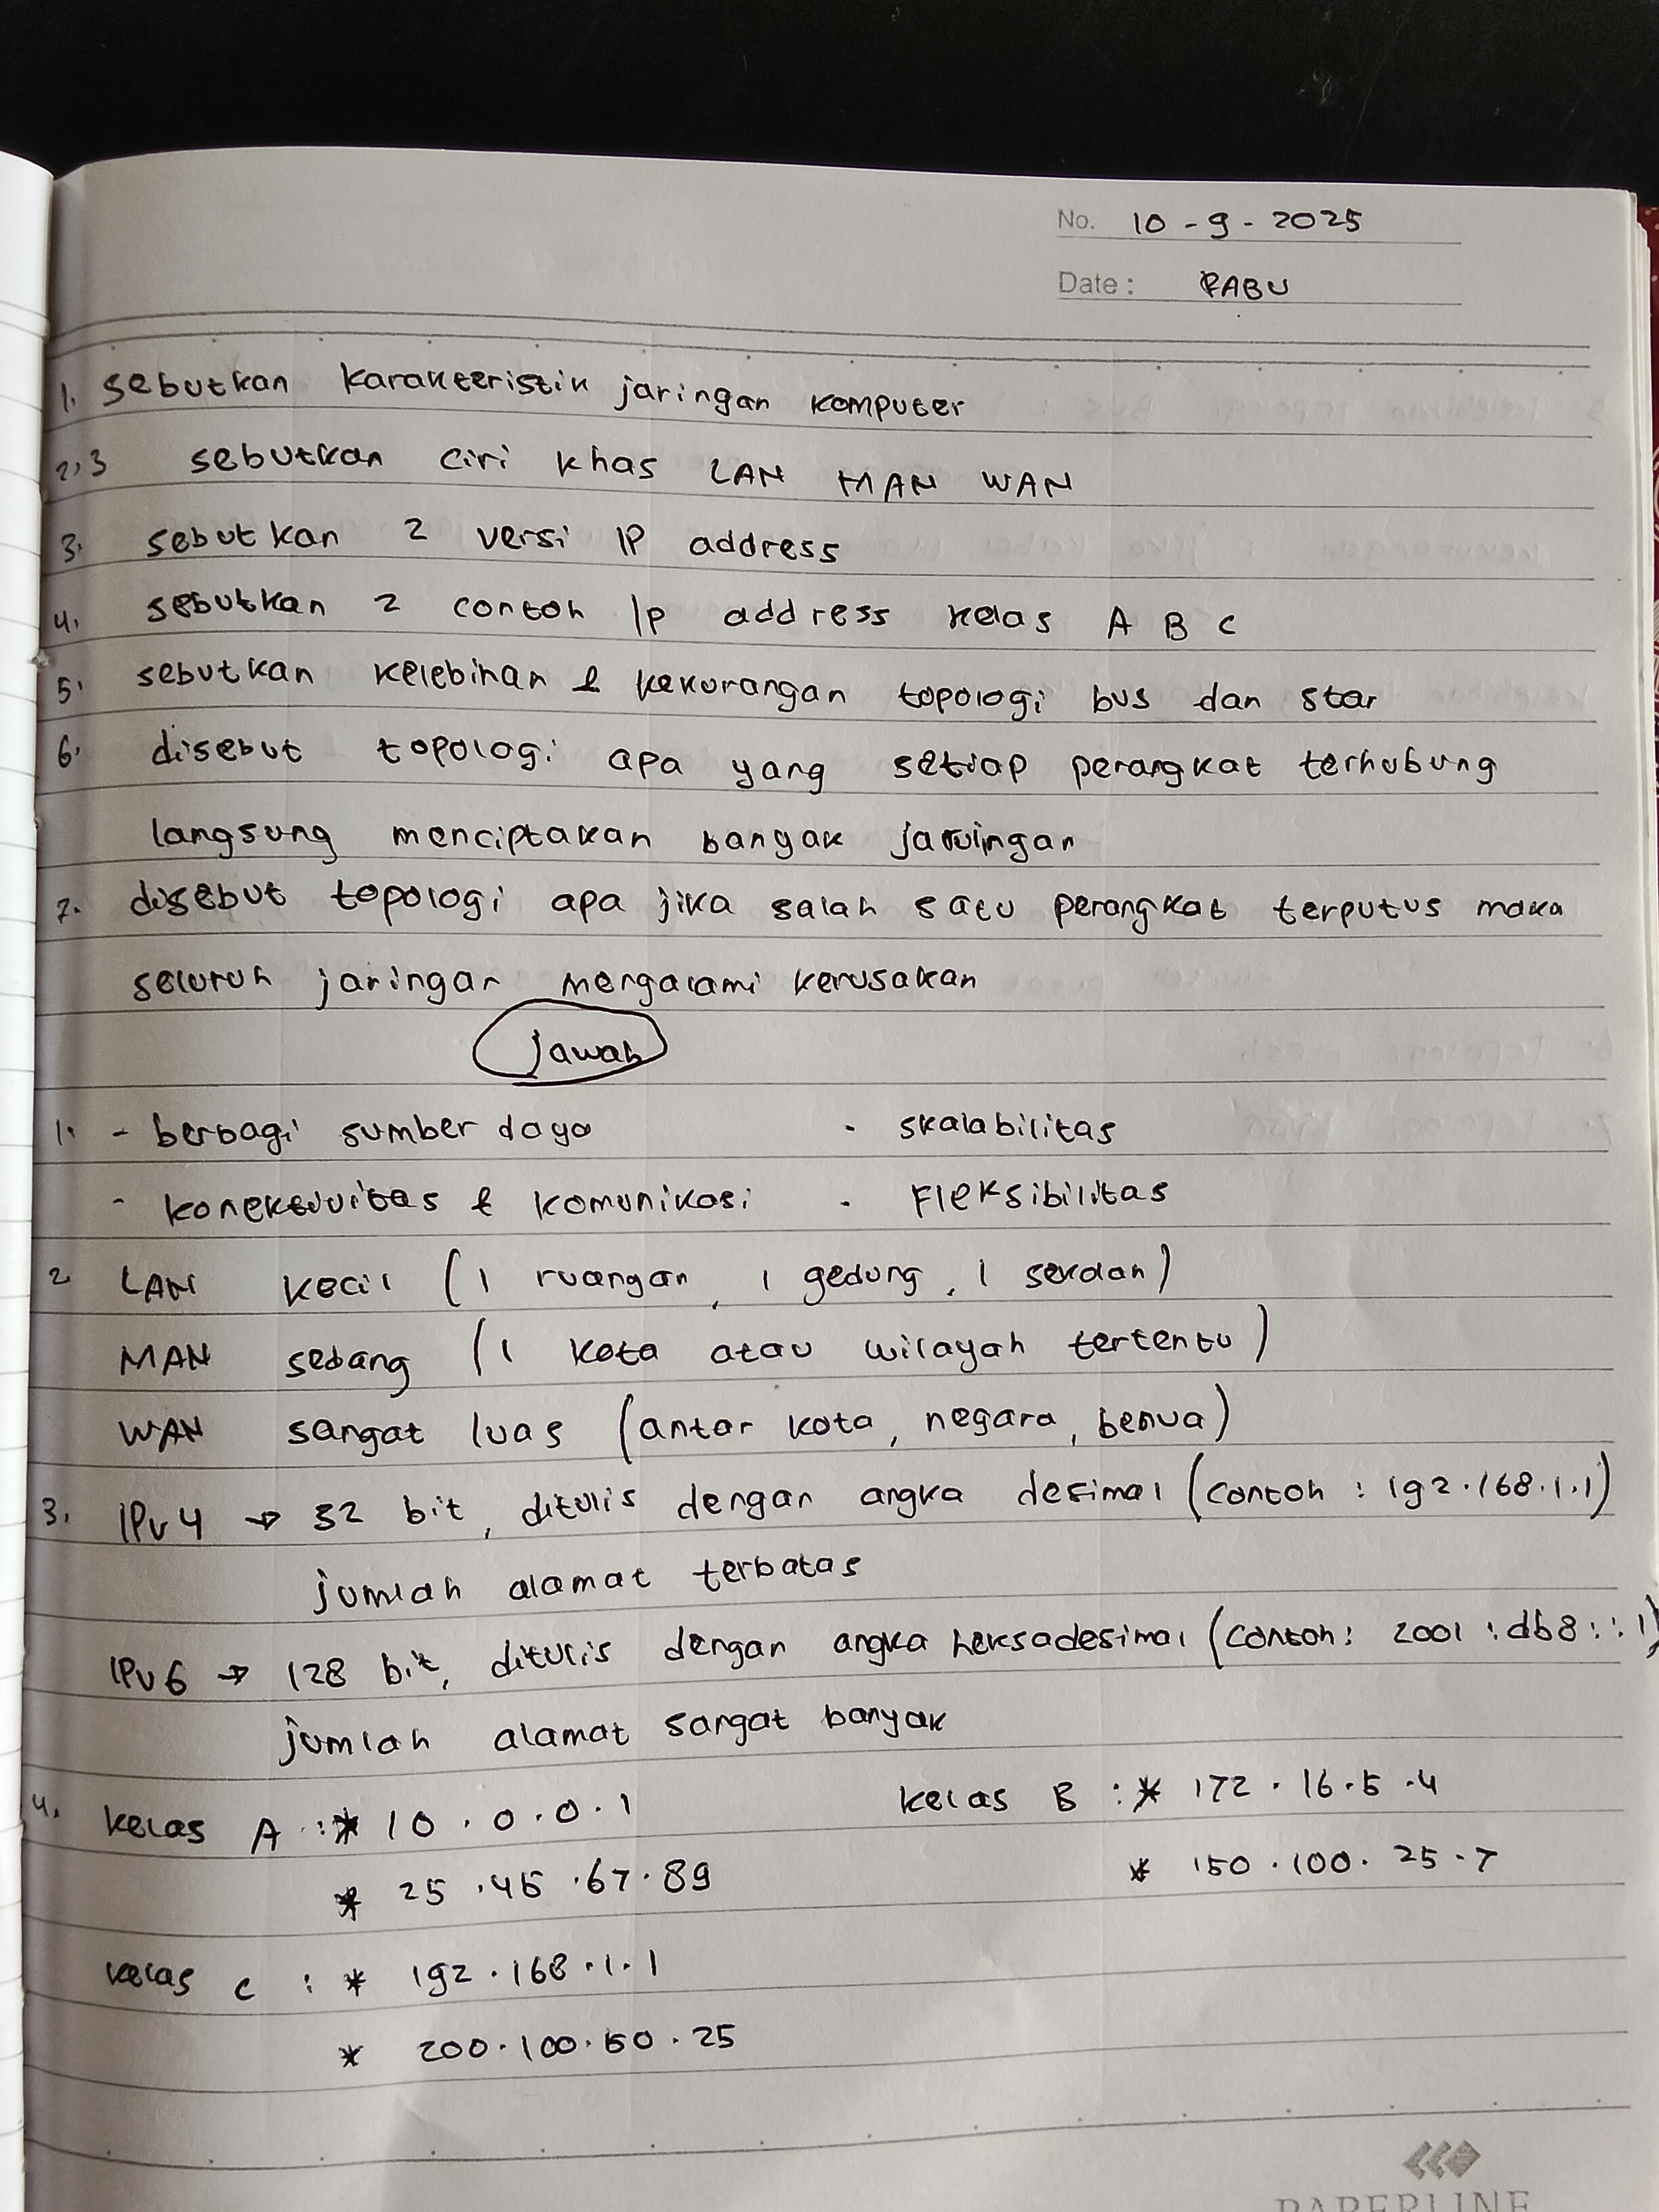 No. 10 - 9 - 2025
Date : RABU
1. sebutkan karakteristik jaringan komputer
2,3 sebutkan ciri khas LAN MAN WAN
3. sebutkan 2 versi IP address
4. sebutkan 2 contoh Ip address kelas A B C
5. sebutkan kelebihan & kekurangan topologi bus dan star
6. disebut topologi apa yang setiap perangkat terhubung
langsung menciptakan banyak jaringan
7. disebut topologi apa jika salah satu perangkat terputus maka
seluruh jaringan mengalami kerusakan
jawab
1. - berbagi sumber daya - skalabilitas
- konektivitas & komunikasi - Fleksibilitas
2 LAN kecil (1 ruangan, 1 gedung, 1 sekolah)
MAN sedang (1 kota atau wilayah tertentu)
WAN sangat luas (antar kota, negara, benua)
3. IPv4 → 32 bit, ditulis dengan angka desimal (contoh : 192.168.1.1)
jumlah alamat terbatas
IPv6 → 128 bit, ditulis dengan angka heksadesimal (contoh: 2001 :db8::1)
jumlah alamat sangat banyak
4. kelas A : * 10.0.0.1 kelas B : * 172.16.5.4
* 25.45.67.89 * 150.100.25.7
kelas c : * 192.168.1.1
* 200.100.50.25
PAPERLINE